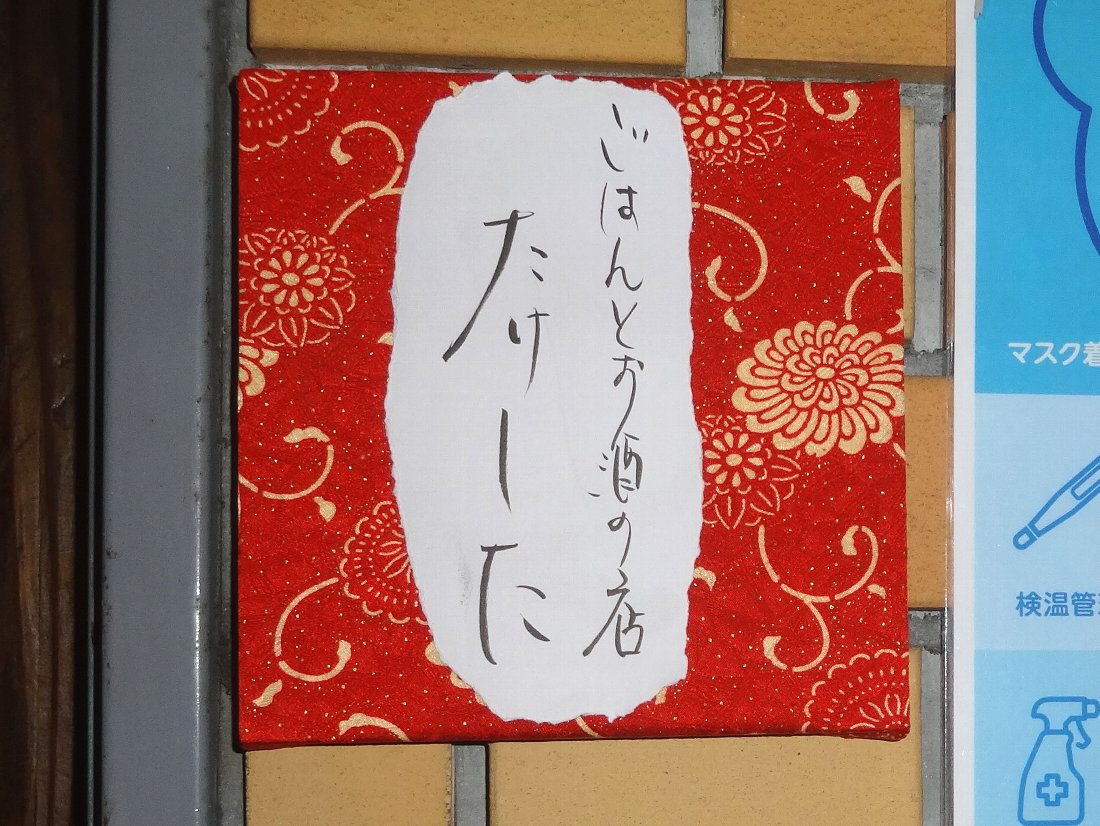 ごはんとお酒の店
たけした
マスク着
検温管